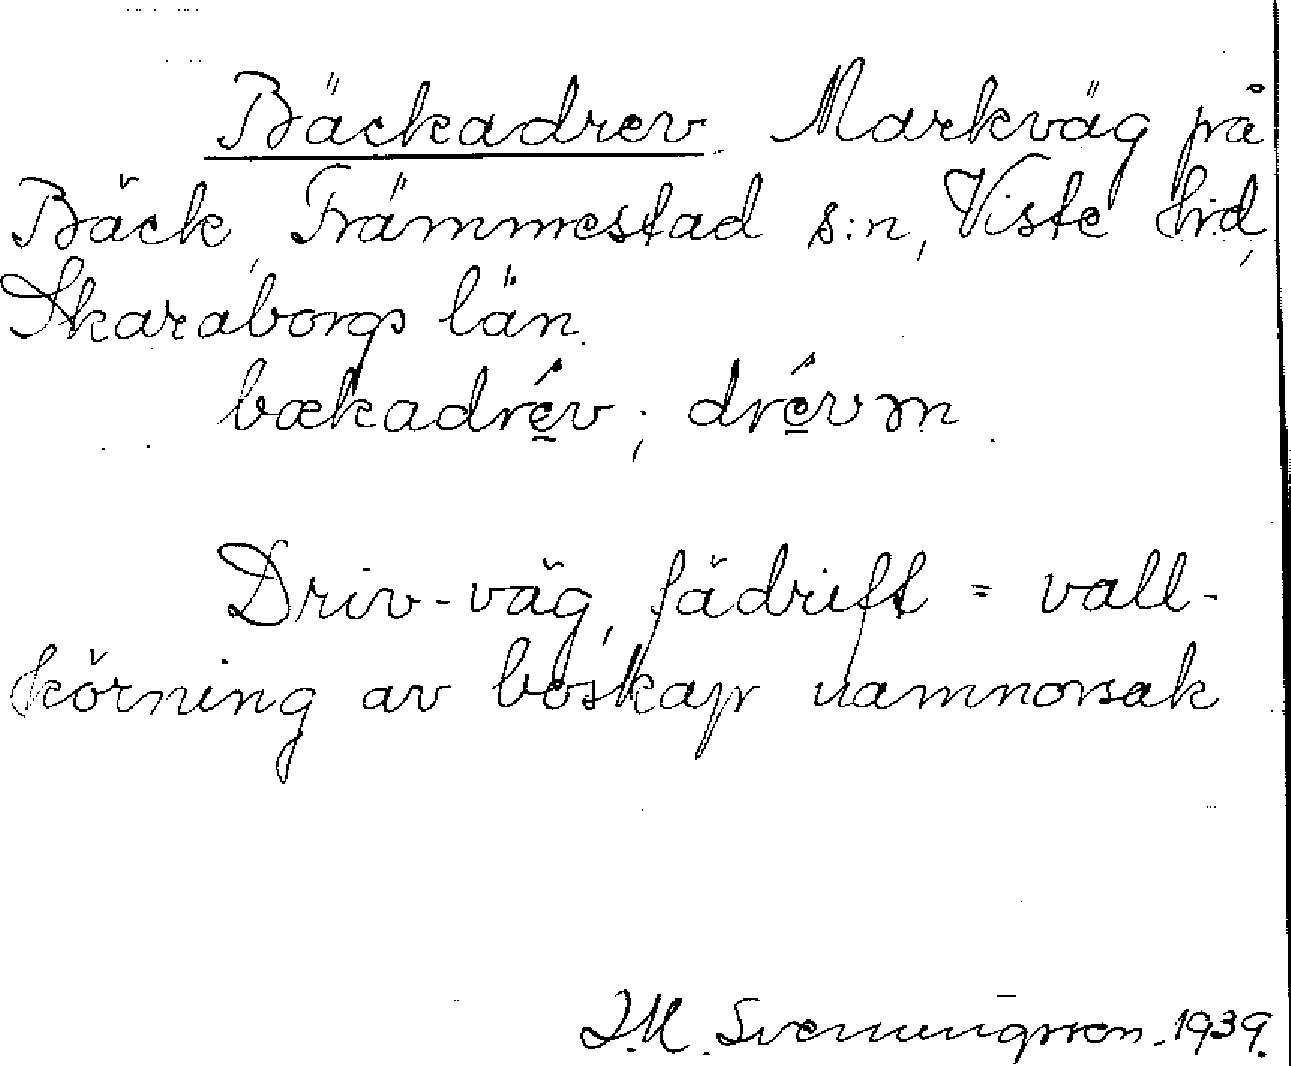 Bäckadrev. Markväg på
Bäck, Främmestad s:n, Viste hd,
Skaraborgs län.
bækadrév; drévm
Driv-väg, fädrift = vall-
körning av boskap namnorsak
J.M. Svenningsson. 1939.